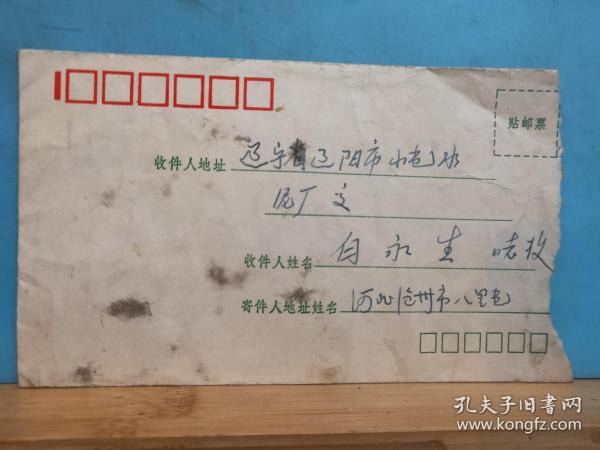 贴邮票
收件人地址 辽宁省辽阳市小屯水
泥厂交
收件人姓名 白永生 收
寄件人地址姓名 河北沧州市八里屯
孔夫子旧书网
www.kongfz.com